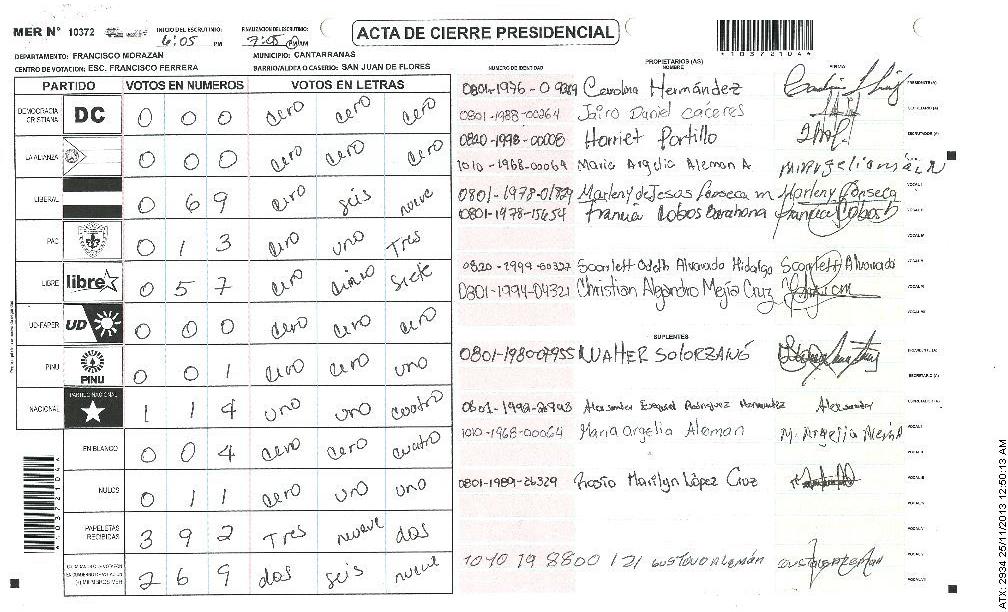 MER N° 10372
INICIO DEL ESCRUTINIO: 6:05 PM
FINALIZACION DEL ESCRUTINIO: 7:05 PM
ACTA DE CIERRE PRESIDENCIAL
10372104
DEPARTAMENTO: FRANCISCO MORAZAN MUNICIPIO: CANTARRANAS
CENTRO DE VOTACION: ESC. FRANCISCO FERRERA BARRIO/ALDEA O CASERIO: SAN JUAN DE FLORES
PARTIDO VOTOS EN NUMEROS VOTOS EN LETRAS
DEMOCRACIA CRISTIANA DC 0 0 0 cero cero cero
LA ALIANZA 0 0 0 cero cero cero
LIBERAL 0 6 9 cero seis nueve
PAC 0 1 3 cero uno Tres
LIBRE libre 0 5 7 cero cinco siete
UD-FAPER UD 0 0 0 cero cero cero
PINU PINU 0 0 1 cero cero uno
NACIONAL PARTIDO NACIONAL 1 1 4 uno uno cuatro
EN BLANCO 0 0 4 cero cero cuatro
NULOS 0 1 1 cero uno uno
PAPELETAS RECIBIDAS 3 9 2 Tres nueve dos
2 6 9 dos seis nueve
10372104
NUMERO DE IDENTIDAD PROPIETARIOS (AS) NOMBRE FIRMA
Carolina Hernández PRESIDENTE (A)
0801-1988-00264 Jairo Daniel caceres SECRETARIO (A)
0820-1998-00008 Harriet Portillo ESCRUTADOR (A)
1010-1968-00069 Maria Argelia Aleman A VOCAL I
Marleny de Jesus Fonseca m. Marleny Fonseca
0801-1978-15654 Francia Lobos Barahona
0820-1999-00327 Scarlett Odeth Alvarado Hidalgo Scarlett Alvarado
0801-1994-04321 Christian Alejandro Mejia Cruz
SUPLENTES
0801-198007955 WALTER SOLORZANO PRESIDENTE (A)
SECRETARIO (A)
Alexander Ezequiel Rodriguez Hernandez Alexander
1010-1968-00064 Maria argelia Aleman M. Argelia Alemán
0801-1989-26329 Rosio Marilyn López Cruz
1010 19 8800 121 GUSTAVO ALEMÁN
ATX: 2934 25/11/2013 12:50:13 AM